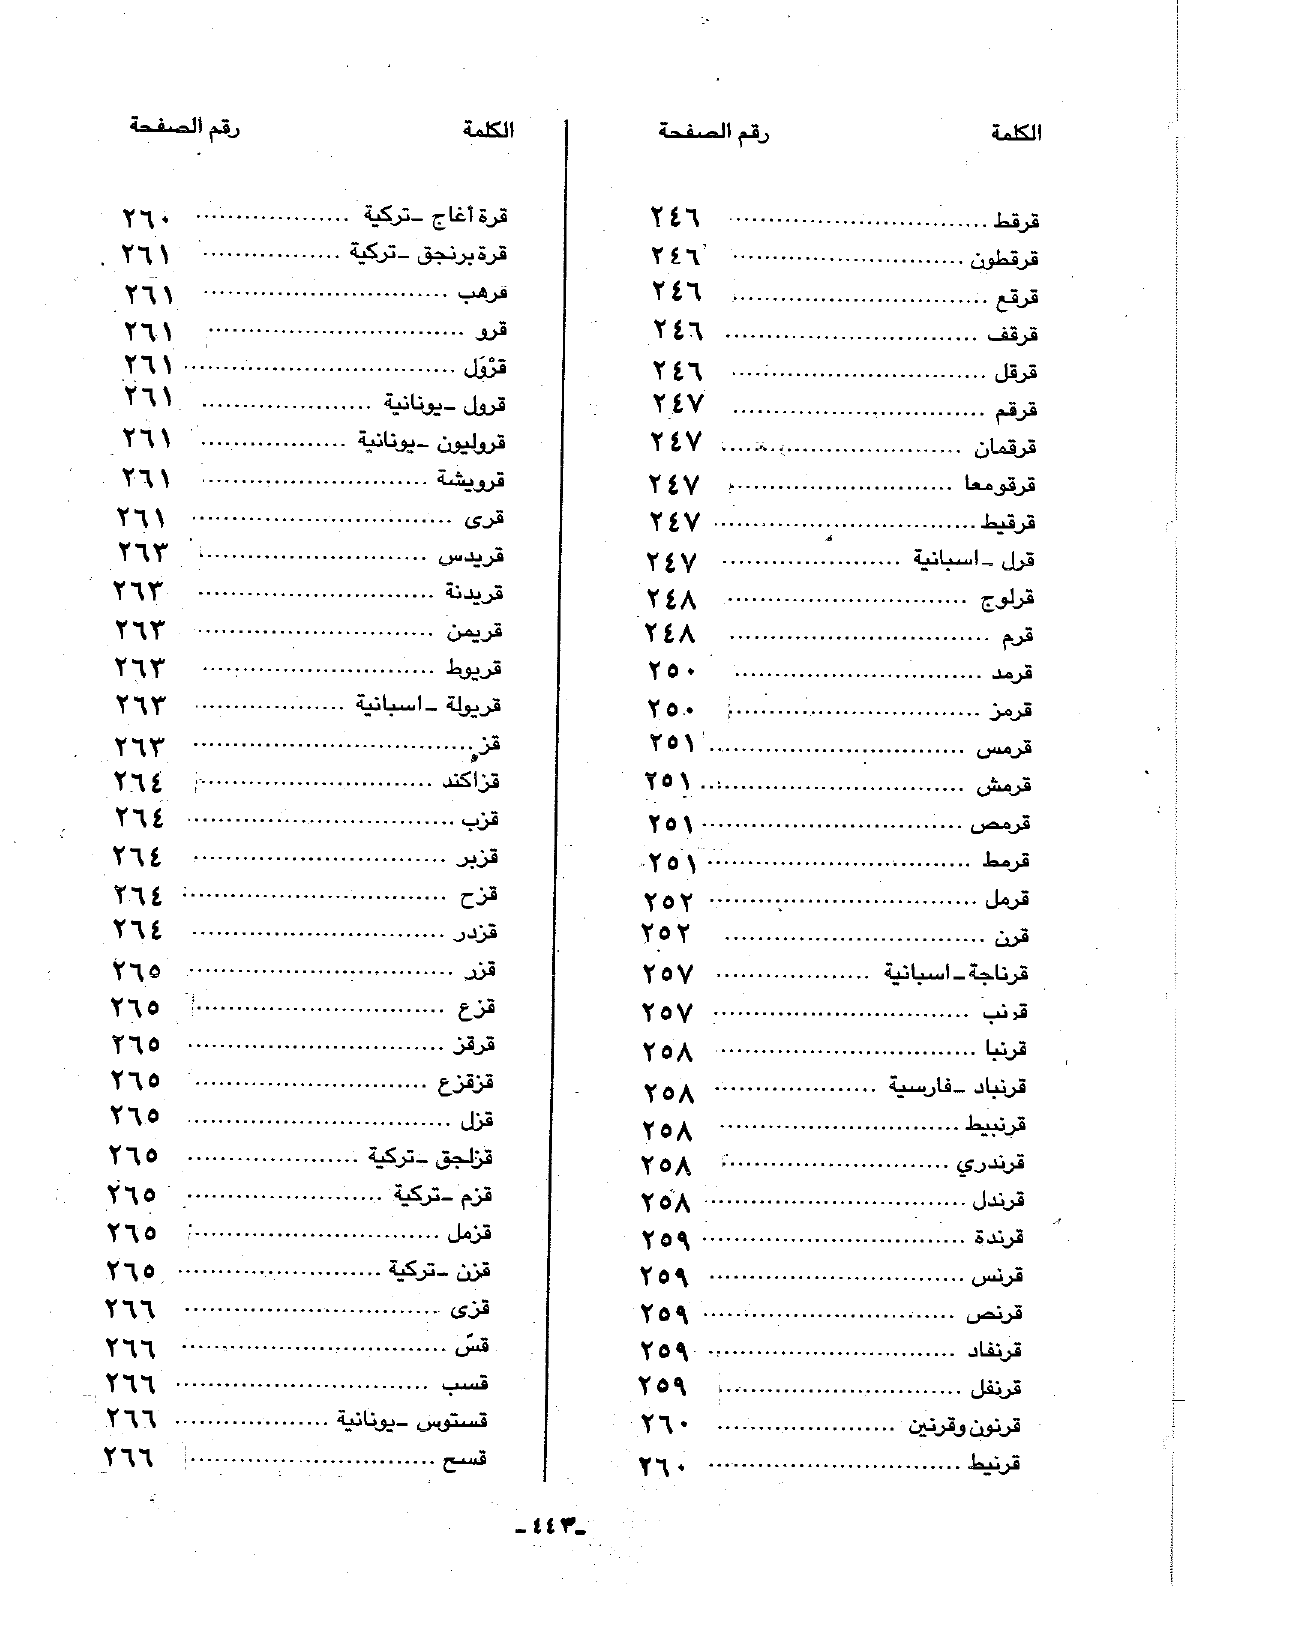 الكلمة رقم الصفحة
قرقط ٢٤٦
قرقطون ٢٤٦
قرقع ٢٤٦
قرقف ٢٤٦
قرقل ٢٤٦
قرقم ٢٤٧
قرقمان ٢٤٧
قرقومعا ٢٤٧
قرقيط ٢٤٧
قرل ـ اسبانية ٢٤٧
قرلوج ٢٤٨
قرم ٢٤٨
قرمد ٢٥٠
قرمز ٢٥٠
قرمس ٢٥١
قرمش ٢٥١
قرمص ٢٥١
قرمط ٢٥١
قرمل ٢٥٢
قرن ٢٥٢
قرناجة ـ اسبانية ٢٥٧
قرنب ٢٥٧
قرنبا ٢٥٨
قرنباد ـ فارسية ٢٥٨
قرنبيط ٢٥٨
قرندري ٢٥٨
قرندل ٢٥٨
قرندة ٢٥٩
قرنس ٢٥٩
قرنص ٢٥٩
قرنفاد ٢٥٩
قرنفل ٢٥٩
قرنون وقرنين ٢٦٠
قرنيط ٢٦٠
الكلمة رقم الصفحة
قرة أغاج ـ تركية ٢٦٠
قرة برنجق ـ تركية ٢٦١
قرهب ٢٦١
قرو ٢٦١
قرْوَل ٢٦١
قرول ـ يونانية ٢٦١
قروليون ـ يونانية ٢٦١
قرويشة ٢٦١
قرى ٢٦١
قريدس ٢٦٣
قريدنة ٢٦٣
قريمن ٢٦٣
قريوط ٢٦٣
قريولة ـ اسبانية ٢٦٣
قز ٢٦٣
قزاكند ٢٦٤
قزب ٢٦٤
قزبر ٢٦٤
قزح ٢٦٤
قزدر ٢٦٤
قزر ٢٦٥
قزع ٢٦٥
قرقز ٢٦٥
قزقزع ٢٦٥
قزل ٢٦٥
قزلجق ـ تركية ٢٦٥
قزم ـ تركية ٢٦٥
قزمل ٢٦٥
قزن ـ تركية ٢٦٥
قزى ٢٦٦
قسّ ٢٦٦
قسب ٢٦٦
قستوس ـ يونانية ٢٦٦
قسح ٢٦٦
ـ ٤٤٣ ـ